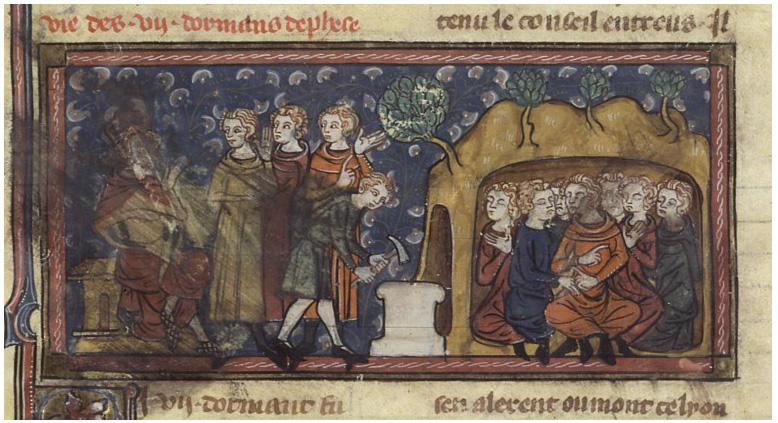 vie des .vij. dormans dephese
I .vij. dormant fu
tenu le conseil entreus. Il
sen alerent ou mont celyon